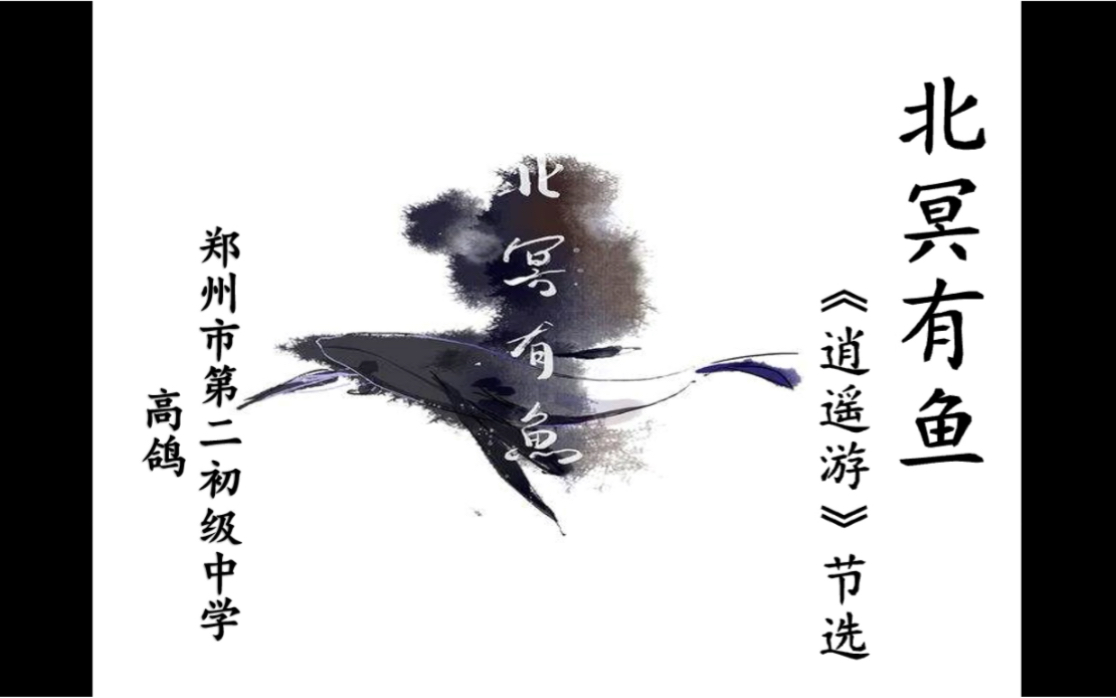 北冥有鱼
《逍遥游》节选
北冥有魚
郑州市第二初级中学
高鸽